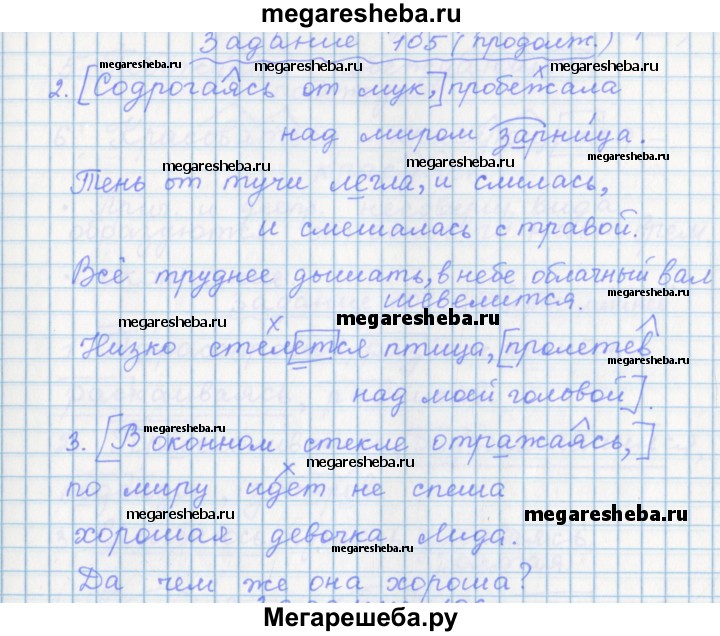 megaresheba.ru
Задание 105 (продолж.)
megaresheba.ru megaresheba.ru megaresheba.ru
2. [Содрогаясь от мук,] пробежала
над миром зарница.
megaresheba.ru megaresheba.ru megaresheba.ru
Тень от тучи легла, и слилась,
и смешалась с травой.
Всё труднее дышать, в небе облачный вал
шевелится.
megaresheba.ru megaresheba.ru
Низко стелется птица, [пролетев
megaresheba.ru
над моей головой].
megaresheba.ru
3. [В оконном стекле отражаясь,]
megaresheba.ru
по миру идет не спеша
megaresheba.ru megaresheba.ru
хорошая девочка Лида.
megaresheba.ru
Да чем же она хороша?
Мегарешеба.ру